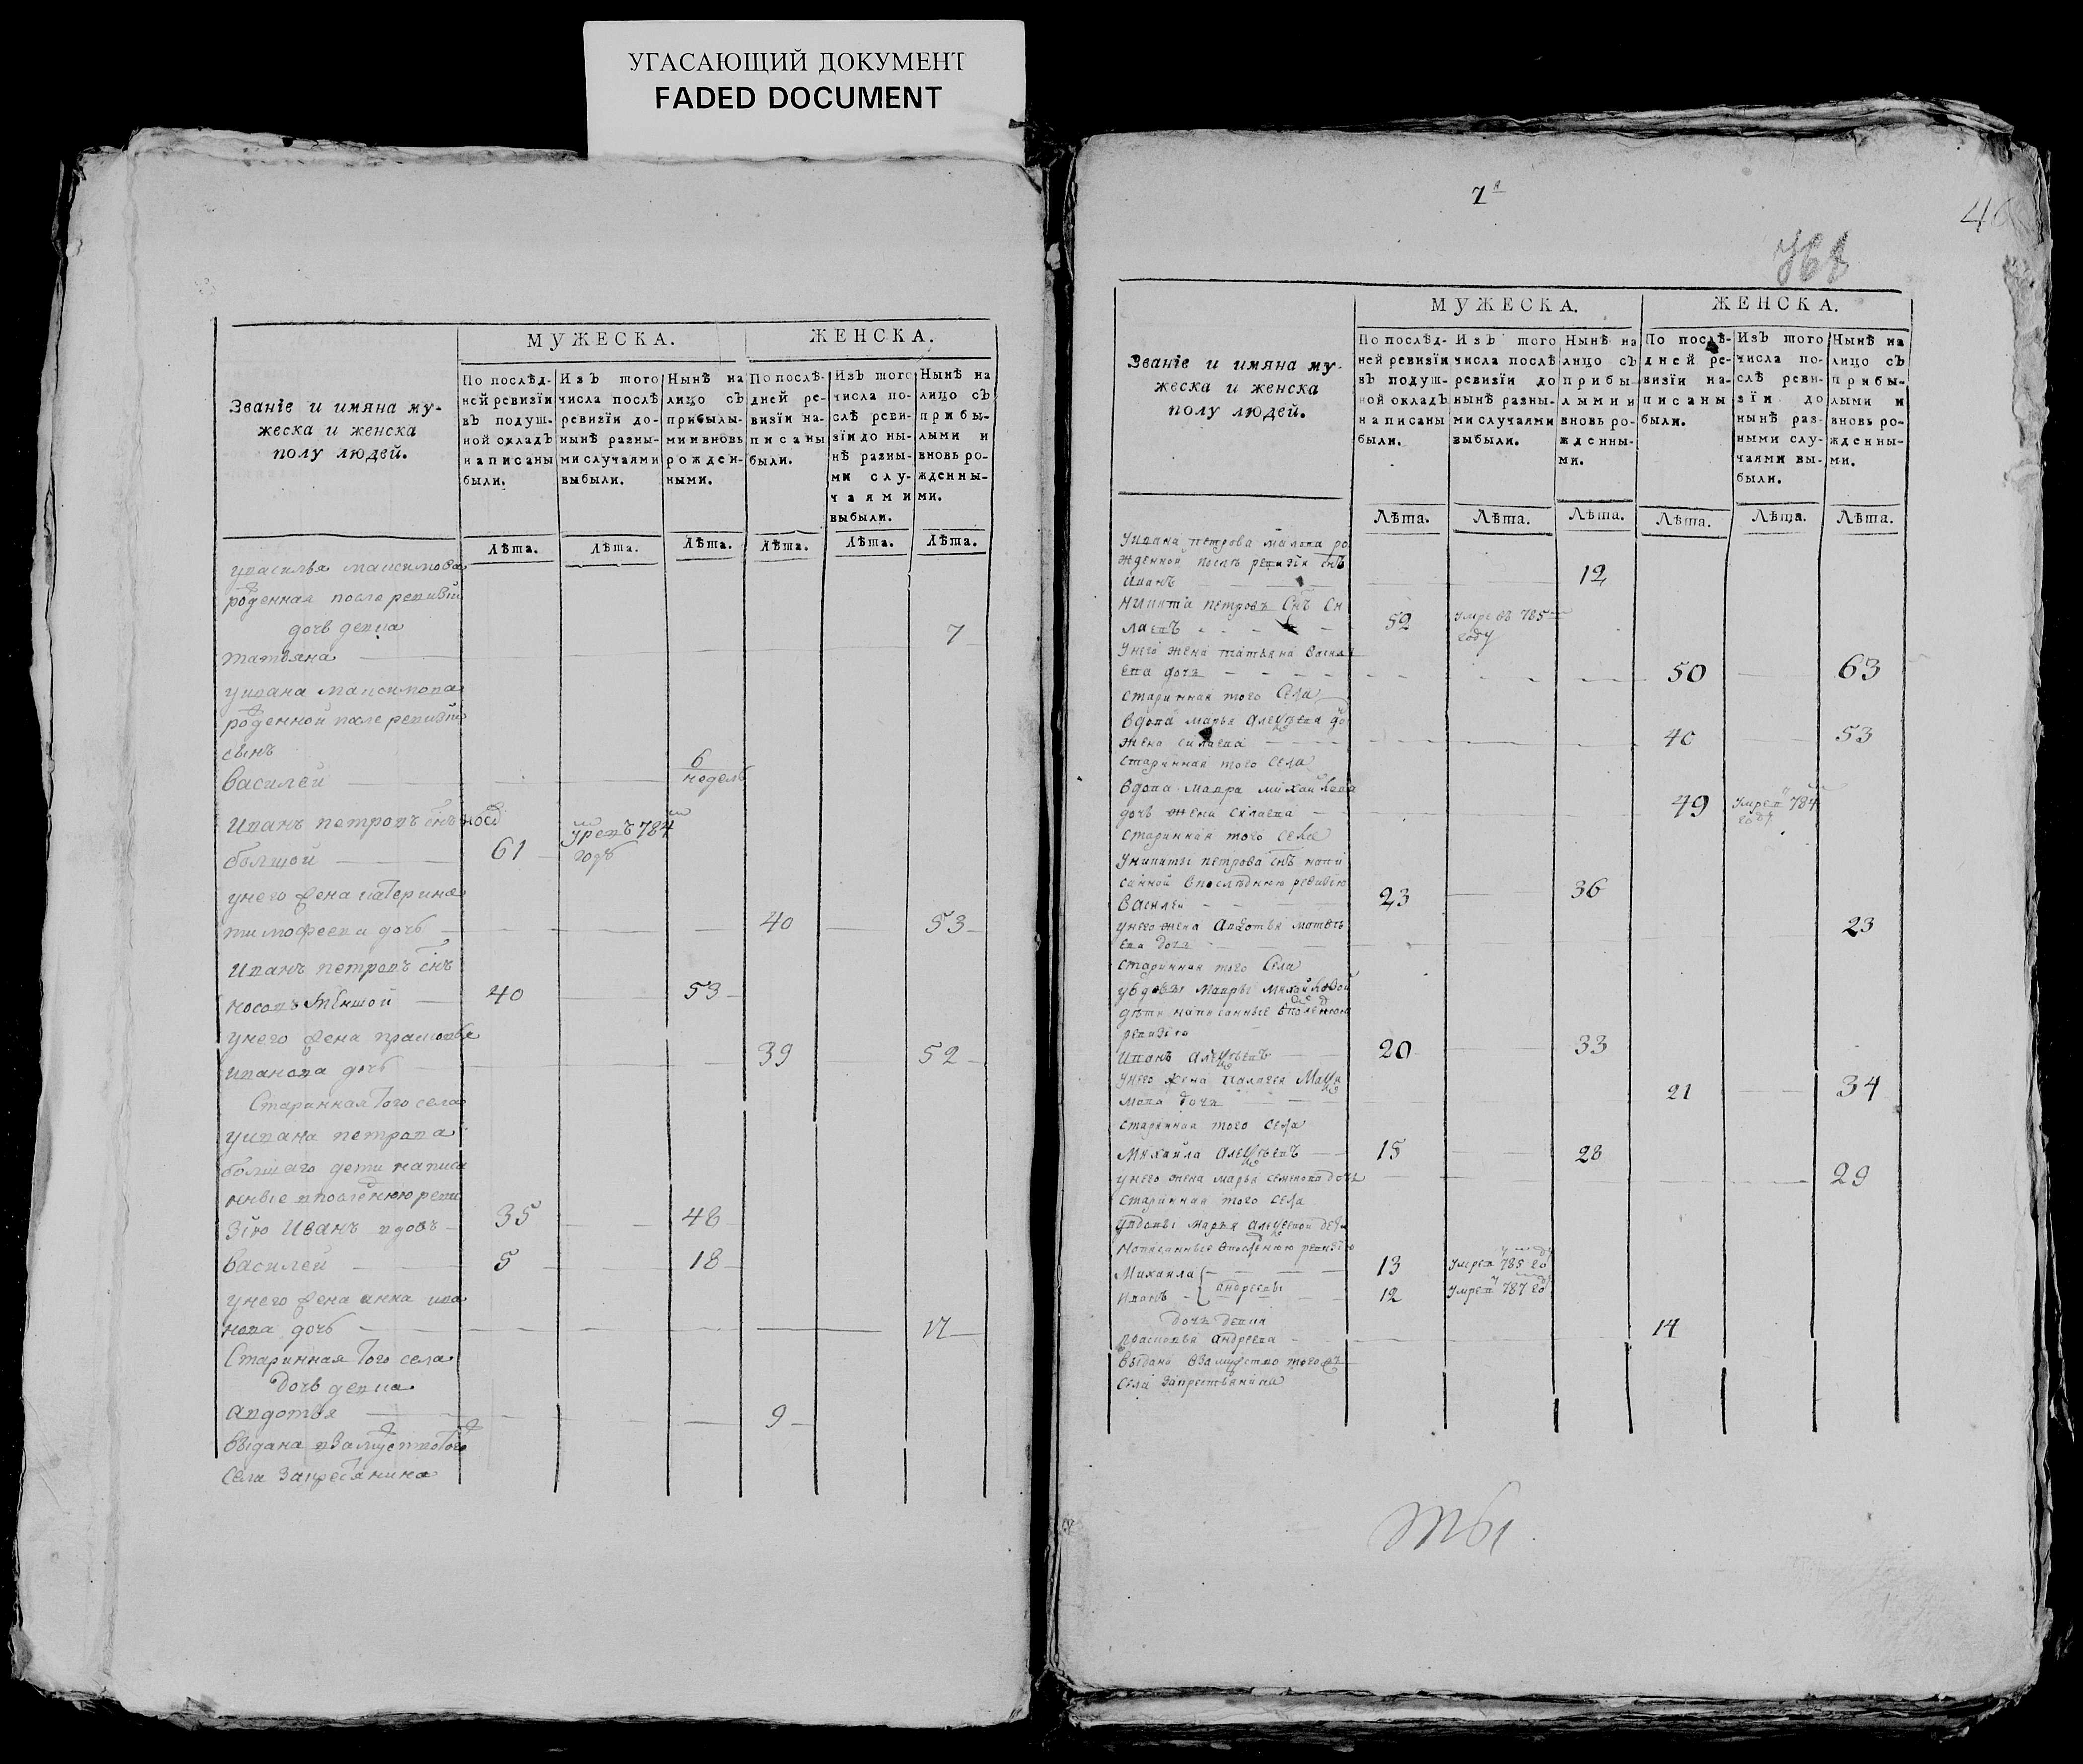 УГАСАЮЩИЙ ДОКУМЕНТ
FADED DOCUMENT
Званїе и имяна му-
жеска и женска
полу людей.
МУЖЕСКА.
ЖЕНСКА.
По послѣд-
ней ревизїи
въ подуш-
ной окладъ
написаны
были.
Изъ того
числа послѣ
ревизїи до-
нынѣ разны-
ми случаями
выбыли.
Нынѣ на
лицо съ
прибылы-
ми и вновь
рожден-
ными.
По послѣ-
дней ре-
визїи на-
писаны
были.
Изъ того
числа по-
слѣ реви-
зїи до ны-
нѣ разны-
ми слу-
чаями
выбыли.
Нынѣ на
лицо съ
прибы-
лыми и
вновь ро-
жденны-
ми.
Лѣта. Лѣта. Лѣта. Лѣта. Лѣта. Лѣта.
увасилья максимова
роденная после ревизїи
дочь девка 7
татьяна
уивана максимова
роденной после ревизїи
сынъ 6
василей неделъ
Иванъ петровъ снъ носо
болшой 61 умревъ 784 годъ
унего жена катерина
тимофеева дочь 40 53
Иванъ петровъ снъ
носовъ меншой 40 53
унего жена прасковья
иванова дочь 39 52
Старинная того села
уивана петрова
болшаго дети написа
нные впоследнюю реви
зїю Иванъ вдовъ 35 48
василей 5 18
унего жена анна ива
нова дочь 17
Старинная того села
дочь девка
авдотья 9
выдана взамужство того
села закрестьянина
7я
46
Званїе и имяна му-
жеска и женска
полу людей.
МУЖЕСКА.
ЖЕНСКА.
По послѣд-
ней ревизїи
въ подуш-
ной окладъ
написаны
были.
Изъ того
числа послѣ
ревизїи до
нынѣ разны-
ми случаями
выбыли.
Нынѣ на
лицо съ
прибы-
лыми и
вновь ро-
жденны-
ми.
По послѣ-
дней ре-
визїи на-
писаны
были.
Изъ того
числа по-
слѣ реви-
зїи до
нынѣ раз-
ными слу-
чаями вы-
были.
Нынѣ на
лицо съ
прибы-
лыми и
вновь ро-
жденны-
ми.
Лѣта. Лѣта. Лѣта. Лѣта. Лѣта. Лѣта.
Уивана петрова малова ро
жденной послѣ ревизїи снъ
Иванъ 12
Никита петровъ Снъ Си
лаевъ 52 умре въ 785 году
Унего жена татьяна василь
ева дочь 50 63
старинная того Села
Вдова марья алеѯѣева до
жена силаева 40 53
старинная того села
Вдова мавра михайлова
дочь жена силаева 49 умре в 784 году
старинная того села
Уникиты петрова снъ напи
санной впослѣднюю ревизїю
василей 23 36
унего жена Авдотья матвѣ
ева дочь 23
старинная того Села
увдовы мавры михайловой
дѣти написанные впоследнюю
ревизїю
Иванъ алеѯѣевъ 20 33
Унего жена палагея Маѯи
мова дочь 21 34
старинная того села
Михайла алеѯѣевъ 15 28
унего жена марья семенова дочь 29
старинная того села
увдовы марья алеѯѣевой дѣти
написанные впоследнюю ревизїю
Михаила 13 умре в 785 го
Иванъ андреевы 12 умре в 787 го
дочь девка
прасковья андреева 14
выдана взамужство того ж
села закрестьянина
ты